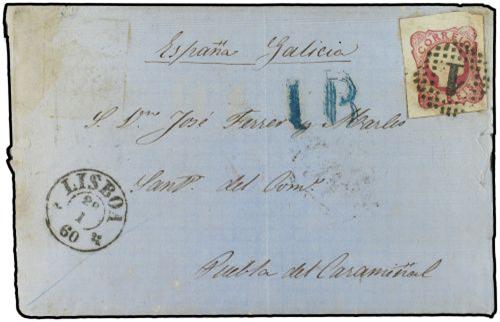 España Galicia
CORREIO
1
1R
S. Dn José Ferrer y Marles
Sant. del Com.
LISBOA
20
1
60
Puebla del Caramiñal